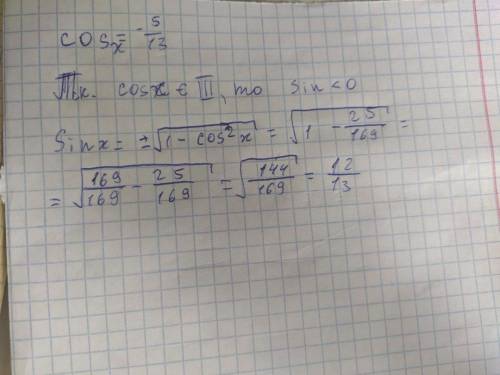 cos x = -5/13
Т.к. cosx ∈ III, то sin < 0
Sin x = ±√(1 - cos²x) = √(1 - 25/169) =
= √(169/169 - 25/169) = √(144/169) = 12/13